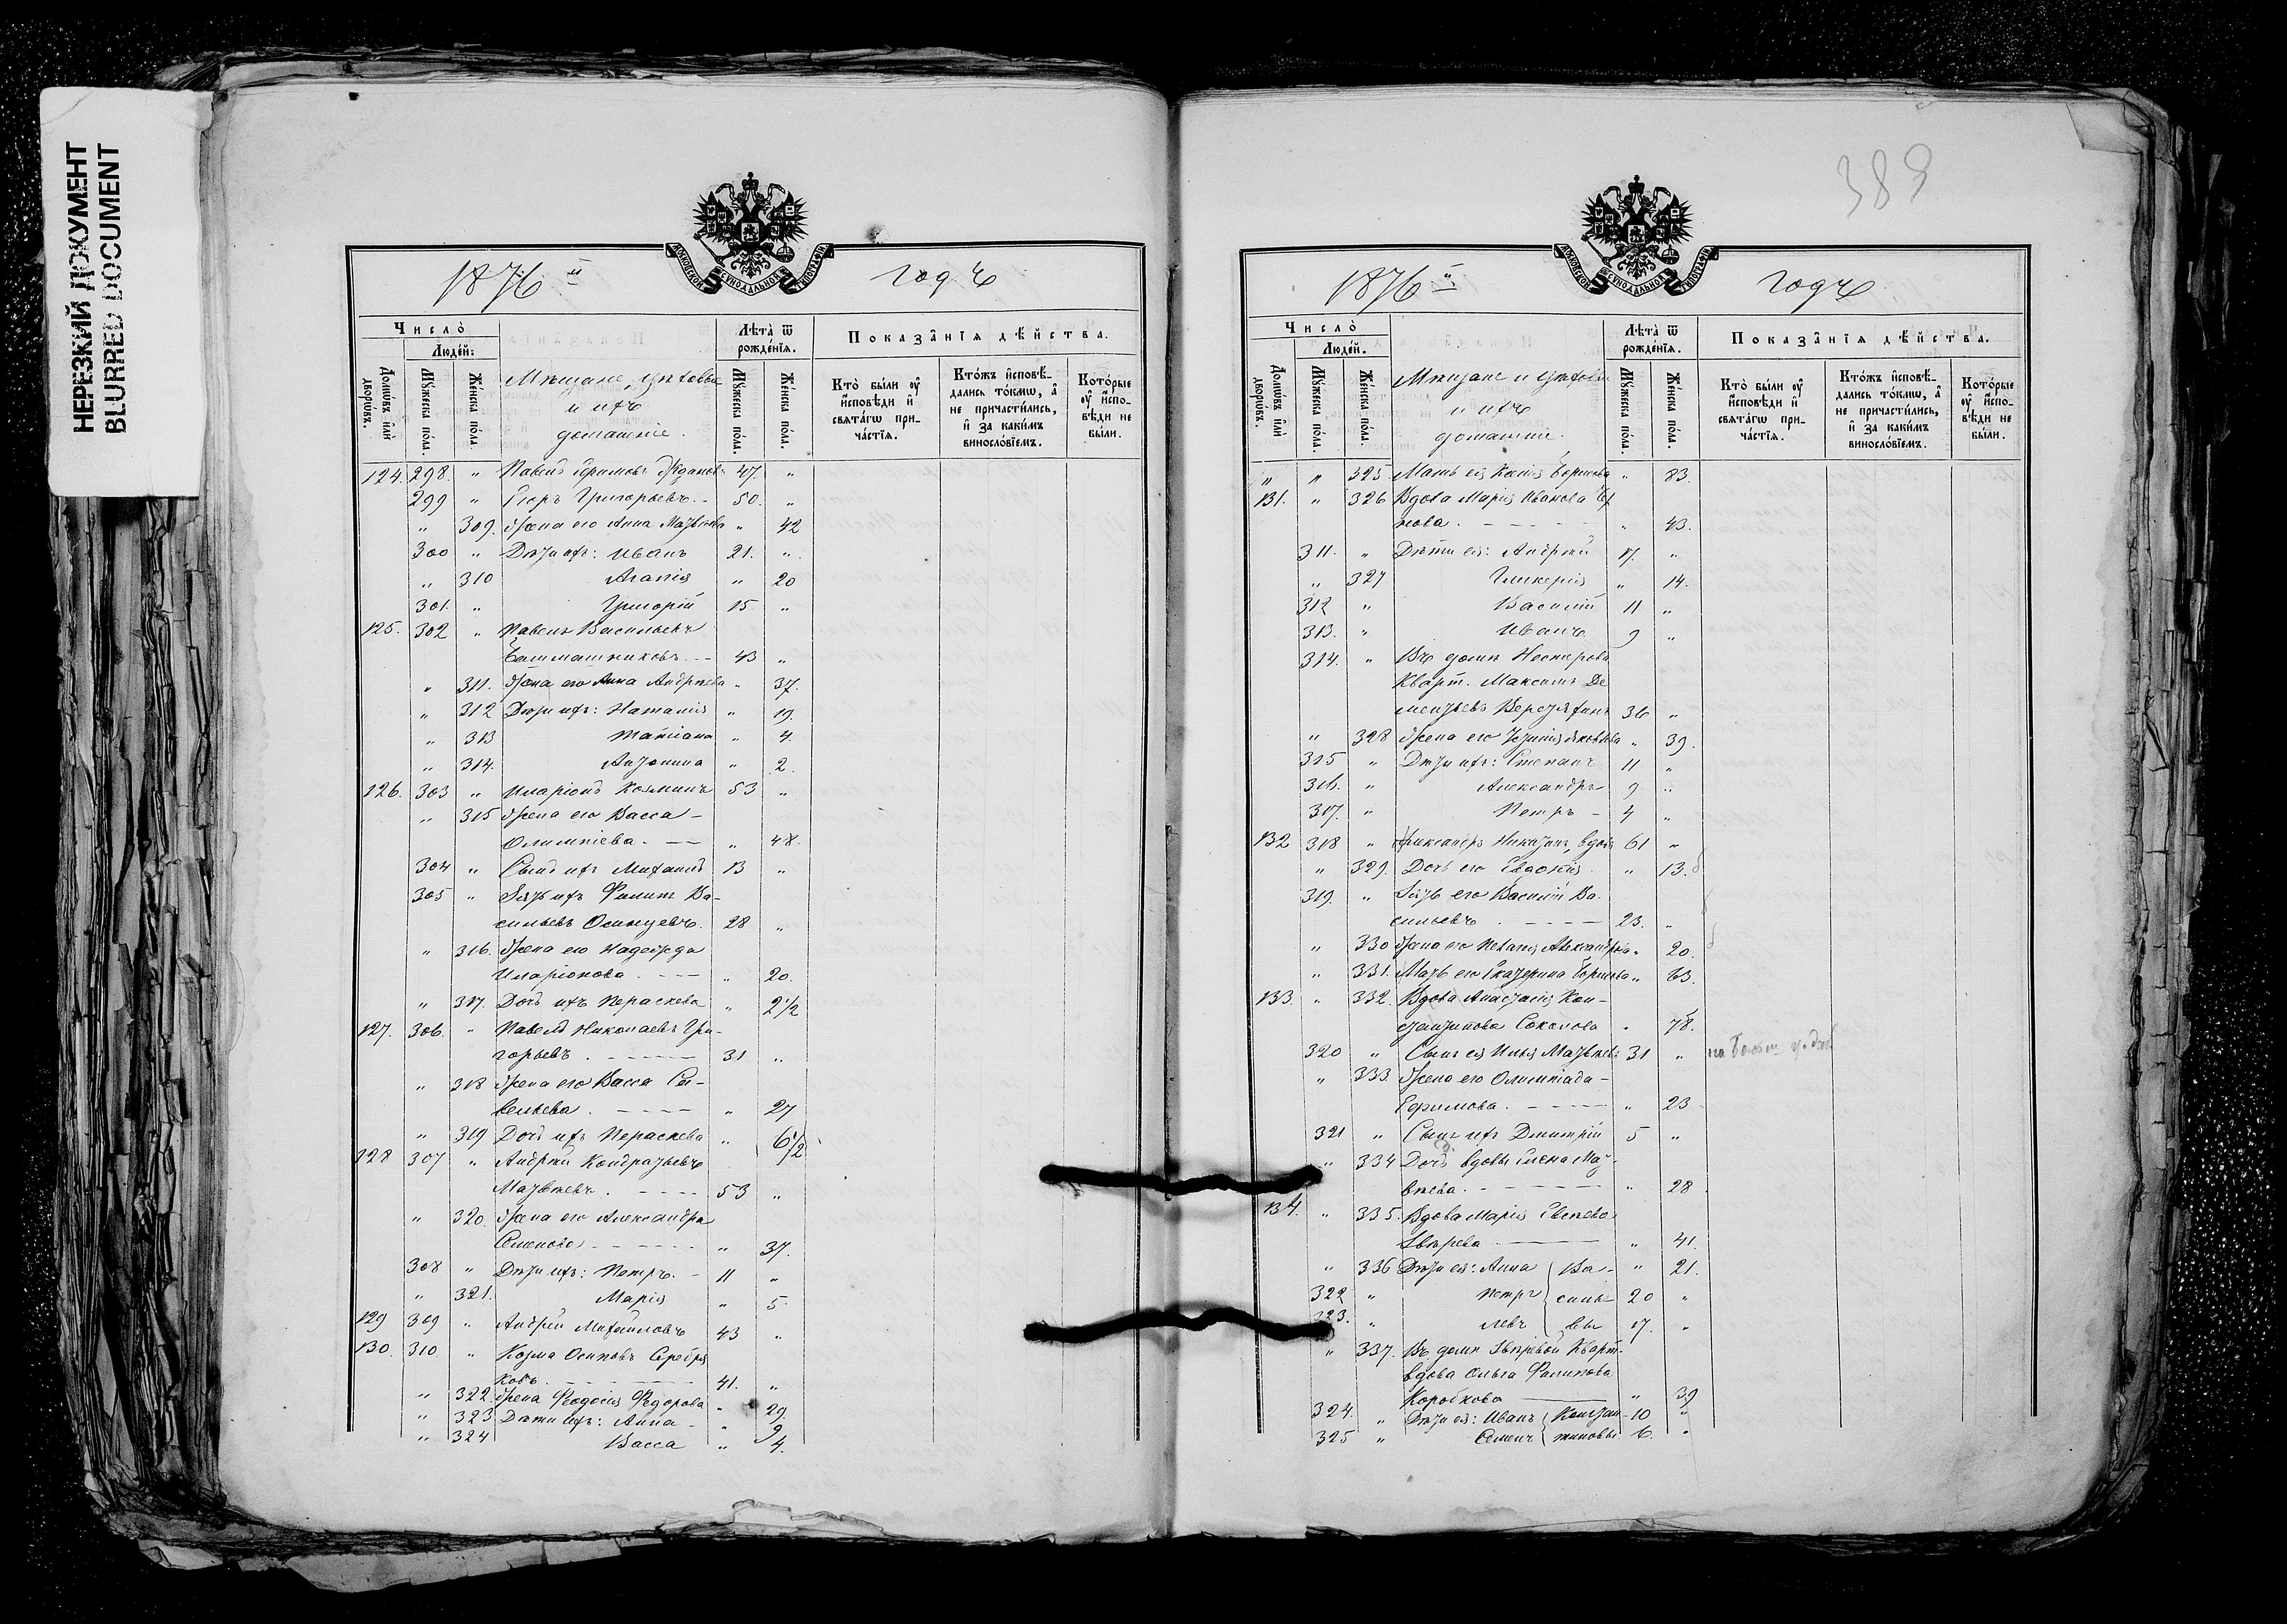 НЕРЕЗКИЙ ДОКУМЕНТ
BLURRED DOCUMENT
МОСКОВСКОЙ СѴНОДАЛЬНОЙ ТИПОГРАФІИ
1876й годъ
Число̀
Людей:
Лѣта̀ ѿ рожде́нїѧ.
Показа̂нїѧ дѣ́йства.
Домѡ́въ и҆лѝ дворѡ́въ.
Мꙋ́жеска по́ла.
Же́нска по́ла.
Мѣщане, цѣховые
и ихъ
домашніе.
Мꙋ́жеска по́ла.
Же́нска по́ла.
Кто̀ бы́ли оу҆ и҆сповѣ́ди и҆ свѧта́гѡ при-ча́стїѧ.
Кто́жъ и҆сповѣ́-дались то́кмѡ, а҆ не причасти́лись, и҆ за каки́мъ винослѡ́вїемъ.
Кото́рые оу҆ и҆спо-вѣ́ди не бы́ли.
124. 298. " Павелъ Ждановъ 47. "
299 " Егоръ Григорьевъ. - 50. "
" 309. Жена его Анна Матвѣева " 42
300 " Дѣти ихъ: Иванъ 21. "
" 310 Агапія " 20
301. " Григорій 15 "
125. 302 " Павелъ Васильевъ
Башмашниковъ. - 43 "
" 311. Жена его Анна Андрѣева " 37.
" 312 Дѣти ихъ: Наталія " 19.
" 313 Татіана " 4.
" 314. Антонина " 2.
126. 303 " Иларіонъ Козминъ 53 "
" 315 Жена его Васса -
Олимпіева. - " 48.
304 " Сынъ ихъ Михаилъ 13 "
305 " Зять ихъ Филипъ Ва-
сильевъ Осинцевъ. 28 "
" 316. Жена его Надежда
Иларіонова. - " 20.
" 317. Дочь ихъ Параскева " 2 1/2
127. 306. " Павелъ Николаевъ Гри-
горьевъ. - 31 "
" 318 Жена его Васса Са-
вельева. - " 27
" 319 Дочь ихъ Параскева " 6 1/2
128 307 " Андрей Кондратьевъ
Матвѣевъ. - 53 "
" 320. Жена его Александра
Семенова - " 37.
308 " Дѣти ихъ: Петръ. - 11 "
" 321. Марія " 5.
129 309 " Андрей Михайловъ 43 "
130. 310. " Козма Осиповъ Серебря
ковъ. - 41. "
" 322. Жена Ѳеодосія Ѳедорова " 29.
" 323 Дѣти ихъ: Анна - " 9
" 324 Васса " 4.
389
МОСКОВСКОЙ СѴНОДАЛЬНОЙ ТИПОГРАФІИ
1876й годъ
Число̀
Людей.
Лѣта̀ ѿ рожде́нїѧ.
Показа̂нїѧ дѣ́йства.
Домѡ́въ и҆лѝ дворѡ́въ.
Мꙋ́жеска по́ла.
Же́нска по́ла.
Мѣщане и цѣховые
и ихъ
домашніе.
Мꙋ́жеска по́ла.
Же́нска по́ла.
Кто̀ бы́ли оу҆ и҆сповѣ́ди и҆ свѧта́гѡ при-ча́стїѧ.
Кто́жъ и҆сповѣ́-дались то́кмѡ, а҆ не причасти́лись, и҆ за каки́мъ винослѡ́вїемъ.
Кото́рые оу҆ и҆спо-вѣ́ди не бы́ли.
" " 325 Мать ея Ксенія Борисова " 83.
131. " 326 Вдова Марія Иванова
нова. - " 43.
311. " Дѣти ея: Андрей 17. "
" 327 Гликерія " 14.
312 " Василій 11 "
313. " Иванъ 9 "
314. " Въ домѣ Нестерова
Кварт. Максимъ Де
ментьевъ 36 "
" 328 Жена его Яковлева " 39.
315 " Дѣти ихъ: Степанъ 11 "
316. " Александръ 9 "
317. " Петръ - 4 "
132 318 " Александръ Никитинъ, вдовъ 61 "
" 329. Дочь его Евдокія " 13.
319. " Зять его Василій Ва-
сильевъ - 23. "
" 330 Жена его Пелагія Александрова " 20.
" 331. Мать его Екатерина Борисова " 63.
133. " 332. Вдова Анастасія Кон-
стантинова Соколова " 78.
320 " Сынъ ея Илья Матвѣевъ 31 "
" 333. Жена его Олимпіада -
Ефимова. - " 23
321 " Сынъ ихъ Дмитрій 5 "
" 334 Дочь вдовы Елена Мат-
вѣева. - " 28
134. " 335. Вдова Марія
Звѣрева - " 41.
" 336 Дѣти ея: Анна Ва- " 21.
322 " Петръ силь- 20 "
323. " Левъ евы 17. "
" 337. Въ домѣ Звѣревой Кварт.
вдова Ольга Филипова
Коробкова - " 39
324. " Дѣти ея: Иванъ Констан- 10 "
325 " Семенъ тиновы 6. "